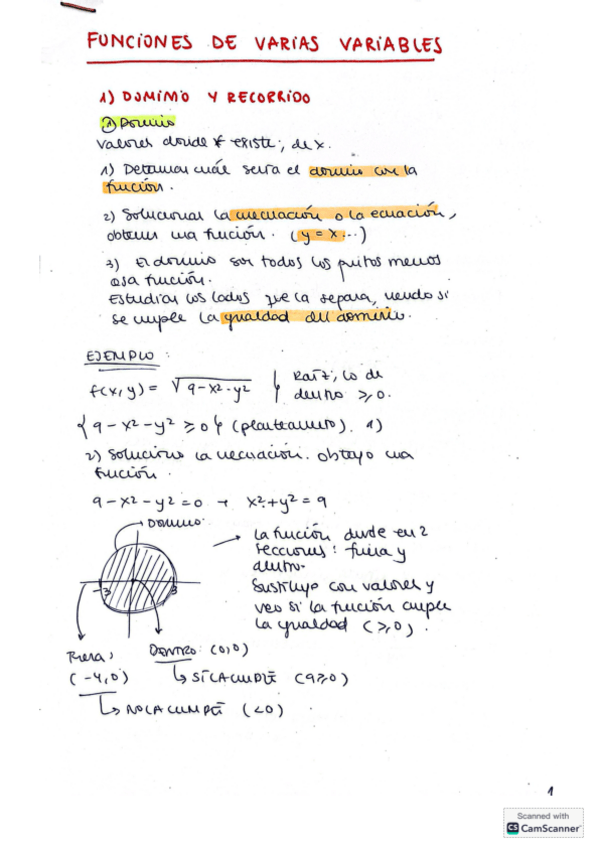 FUNCIONES DE VARIAS VARIABLES
1) DOMINIO Y RECORRIDO
1) Dominio
Valores donde f existe, de x.
1) Determinar cuál sería el dominio con la
función.
2) Solucionar la inecuación o la ecuación,
obtener una función. (y = x...)
3) El dominio son todos los puntos menos
esa función.
Estudiar los lados que la separa, viendo si
se cumple la igualdad del dominio.
EJEMPLO:
f(x,y) = √9-x²-y² } Raíz; lo de
dentro ≥ 0.
{9-x²-y² ≥ 0} (planteamiento). 1)
2) Soluciono la inecuación. obtengo una
función.
9-x²-y²=0 → x²+y²=9
Dominio.
→ La función divide en 2
secciones: fuera y
dentro.
Sustituyo con valores y
veo si la función cumple
la igualdad (≥,0).
-3 3
Fuera: DENTRO: (0,0)
(-4,0) ↳ SÍ LA CUMPLE (9≥0)
↳ NO LA CUMPLE (<0)
1
Scanned with
CS CamScanner